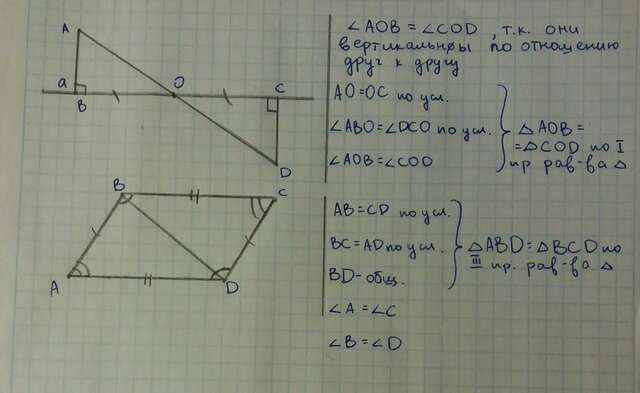 A
a
B
O
C
D
∠AOB = ∠COD , т.к. они
вертикальны по отношению
друг к другу
AO=OC по усл.
∠ABO=∠DCO по усл.
∠AOB=∠COD
△AOB=
=△COD по I
пр. рав-ва △
B
C
A
D
AB=CD по усл.
BC=AD по усл.
BD-общ.
△ABD=△BCD по
III пр. рав-ва △
∠A=∠C
∠B=∠D